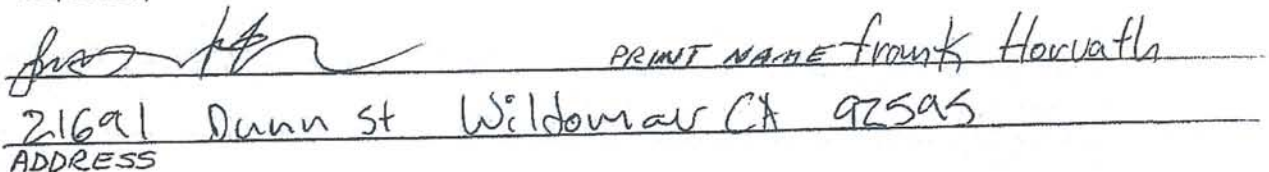 PRINT NAME Frank Horvath
21691 Dunn St Wildomar CA 92595
ADDRESS